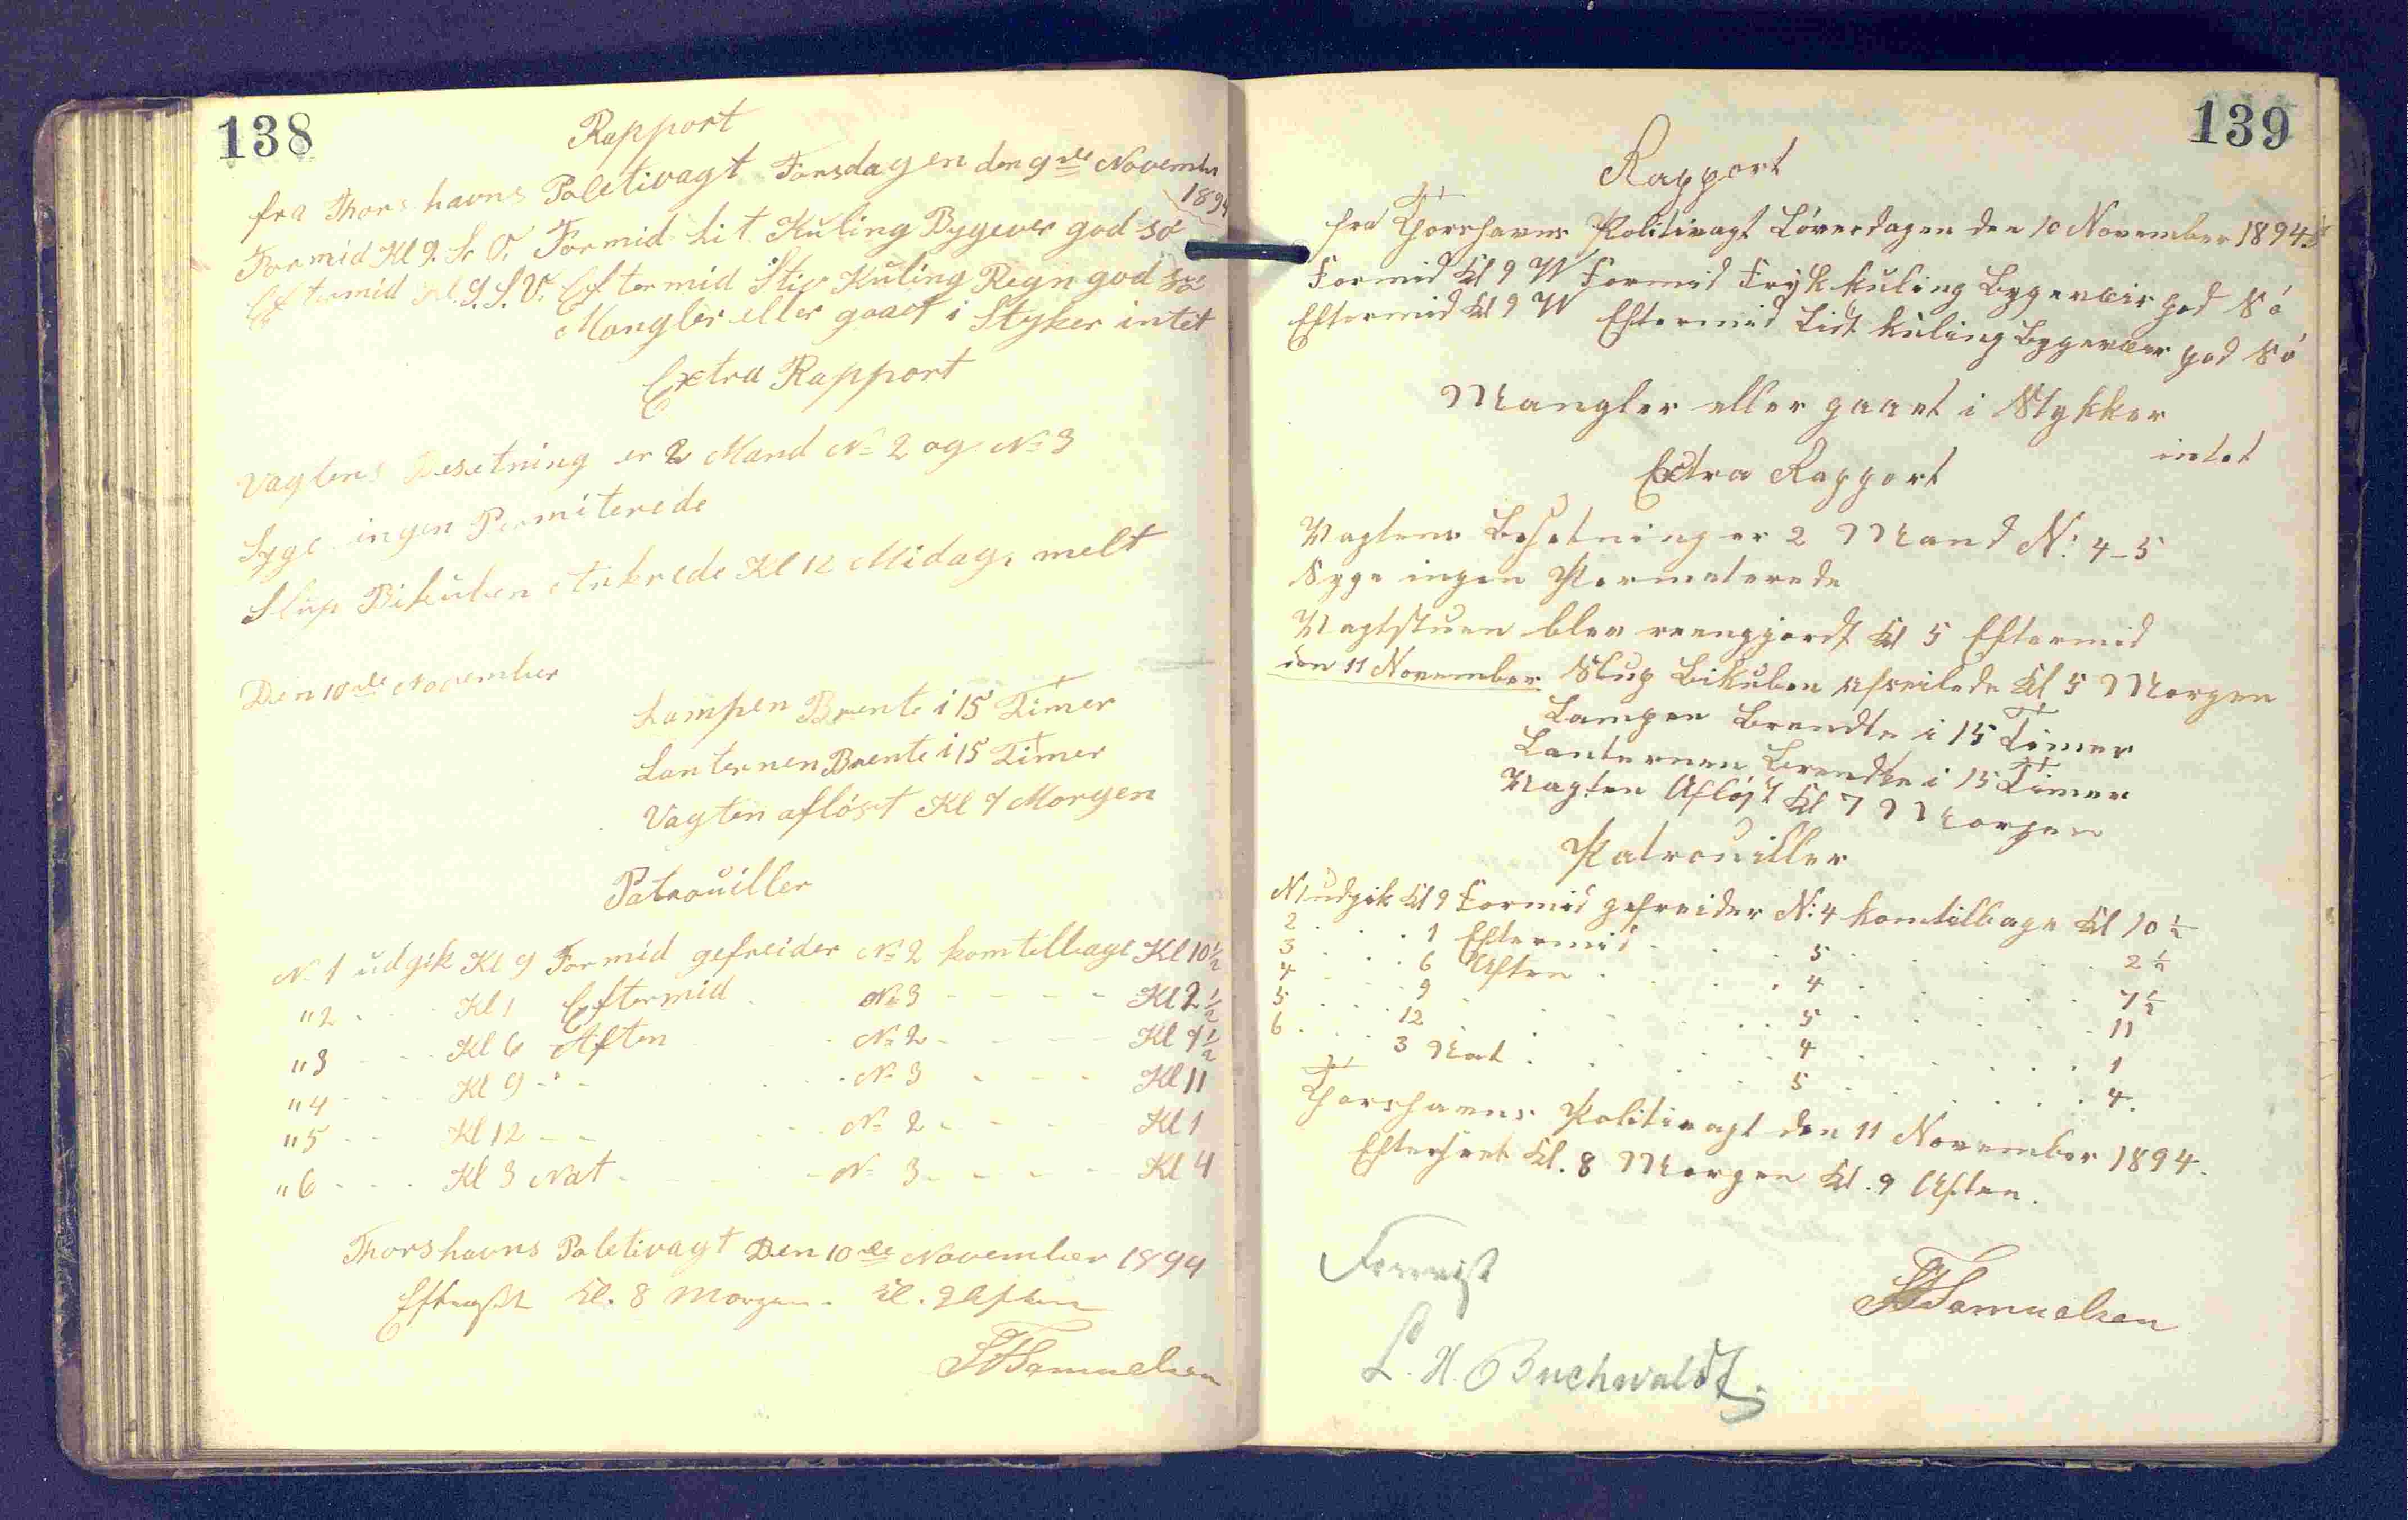 138
Rapport
fra Thorshavns Poletivagt Torsdagen den 9de November
1894
Formid Kl 9. S. O. Formid Lit Kuling Bygever god sö
Eftermid Kl. 9. S. V. Eftermid Stiv Kuling Regn god sö
Mangler eller gaaet i Styker intet
Extra Rapport
Vagtens Besetning er 2 Mand No 2 og No 3
Syge ingen Permiterede
Slup Bikuben Ankrede Kl 12 Midag, melt
Den 10de November
Lampen Brente i 15 Timer
Lanternen Brente i 15 Timer
Vagten aflöst Kl 7 Morgen
Patrouiller
N 1 udgik Kl 9 Formid gefreider No 2 kom tilbage Kl 10½
"2 Kl 1 Eftermid No 3 Kl 2½
"3 Kl 6 Aften No 2 Kl 7½
"4 Kl 9 - " - No 3 Kl 11
"5 Kl 12 - - No 2 Kl 1
"6 Kl 3 Nat No 3 Kl 4
Thorshavns Poletivagt Den 10de November 1894
Kl. 8 Morgen. Kl. 9 Aften
Samuelsen
139
Rapport
fra Thorshavns Politivagt Löverdagen den 10 November 1894.
Formid Kl 9 W Formid Frisk kuling Bygevær god Sö
Eftermid Kl 9 W Eftermid Lidt kuling Bygevær god Sö
Mangler eller gaaet i Stykker
intet
Extra Rapport
Vagtens Besetning er 2 Mand N: 4-5
Syge ingen Permeterede
Vagtstuen blev reengjordt Kl 5 Eftermid
den 11 November Slup Bikuben Afseilede Kl 5 Morgen
Lampen Brendte i 15 Timer
Lanternen Brendte i 15 Timer
Vagten Aflöst Kl 7 Morgen
Patrouiller
N 1 udgik Kl 9 Formid gefreider N: 4 kom tilbage Kl 10½
2 . . . 1 Eftermid . . 5 . . . 2½
3 . . . 6 Aften . . 4 . . . 7½
4 . . . 9 . . . 5 . . . 11
5 . . . 12 . . . 4 . . . 1
6 . . . 3 Nat . . . 5 . . . 4.
Thorshavns Politivagt den 11 November 1894.
Efterseet Kl. 8 Morgen Kl. 9 Aften.
Forevist
Samuelsen
L. H. Buchwaldt.